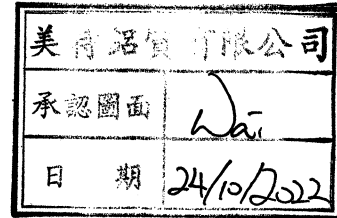 美 鋁質有限公司
承認圖面 Wai
日期 24/10/2022